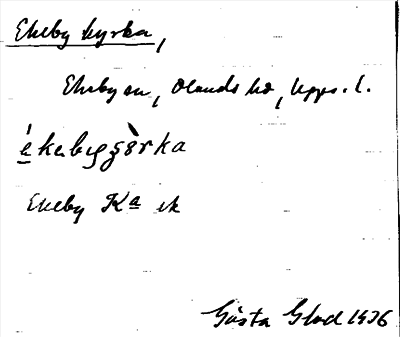 Ekeby kyrka,
Ekeby sn, Olands hd, Upps. l.
Ekeby Ka ek
Gösta Glod 1936